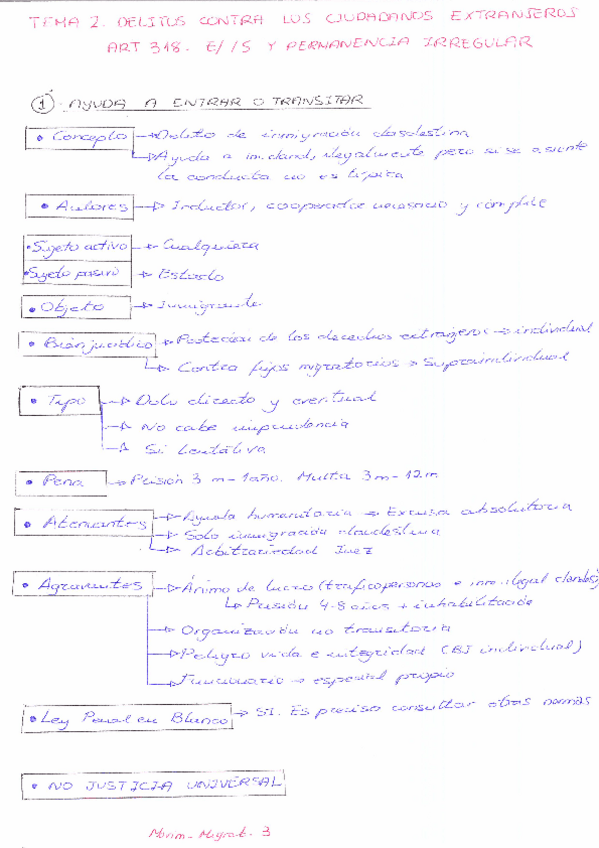 TEMA 2. DELITOS CONTRA LOS CIUDADANOS EXTRANJEROS
ART 318. E//S Y PERMANENCIA IRREGULAR
① AYUDA A ENTRAR O TRANSITAR
• Concepto → Delito de inmigración clandestina
→ Ayuda a inmigrand, ilegalmente pero si se asiente
la conducta no es típica
• Autores → Inductor, cooperador necesario y cómplice
• Sujeto activo → Cualquiera
• Sujeto pasivo → Estado
• Objeto → Inmigrante
• Bien jurídico → Protección de los derechos extranjeros → individual
→ Contra flujos migratorios → Supraindividual
• Tipo → Dolo directo y eventual
→ No cabe imprudencia
→ Si tentativa
• Pena → Prisión 3 m - 1 año. Multa 3 m - 12 m
• Atenuantes → Ayuda humanitaria → Excusa absolutoria
→ Solo inmigración clandestina
→ Arbitrariedad Juez
• Agravantes → Ánimo de lucro (trafico personas e inm. ilegal clandes)
↳ Prisión 4-8 años + inhabilitación
→ Organización no transitoria
→ Peligro vida e integridad (BJ individual)
→ Funcionario → especial propio
• Ley Penal en Blanco → SI. Es preciso consultar otras normas
• NO JUSTICIA UNIVERSAL
Migrat. 3